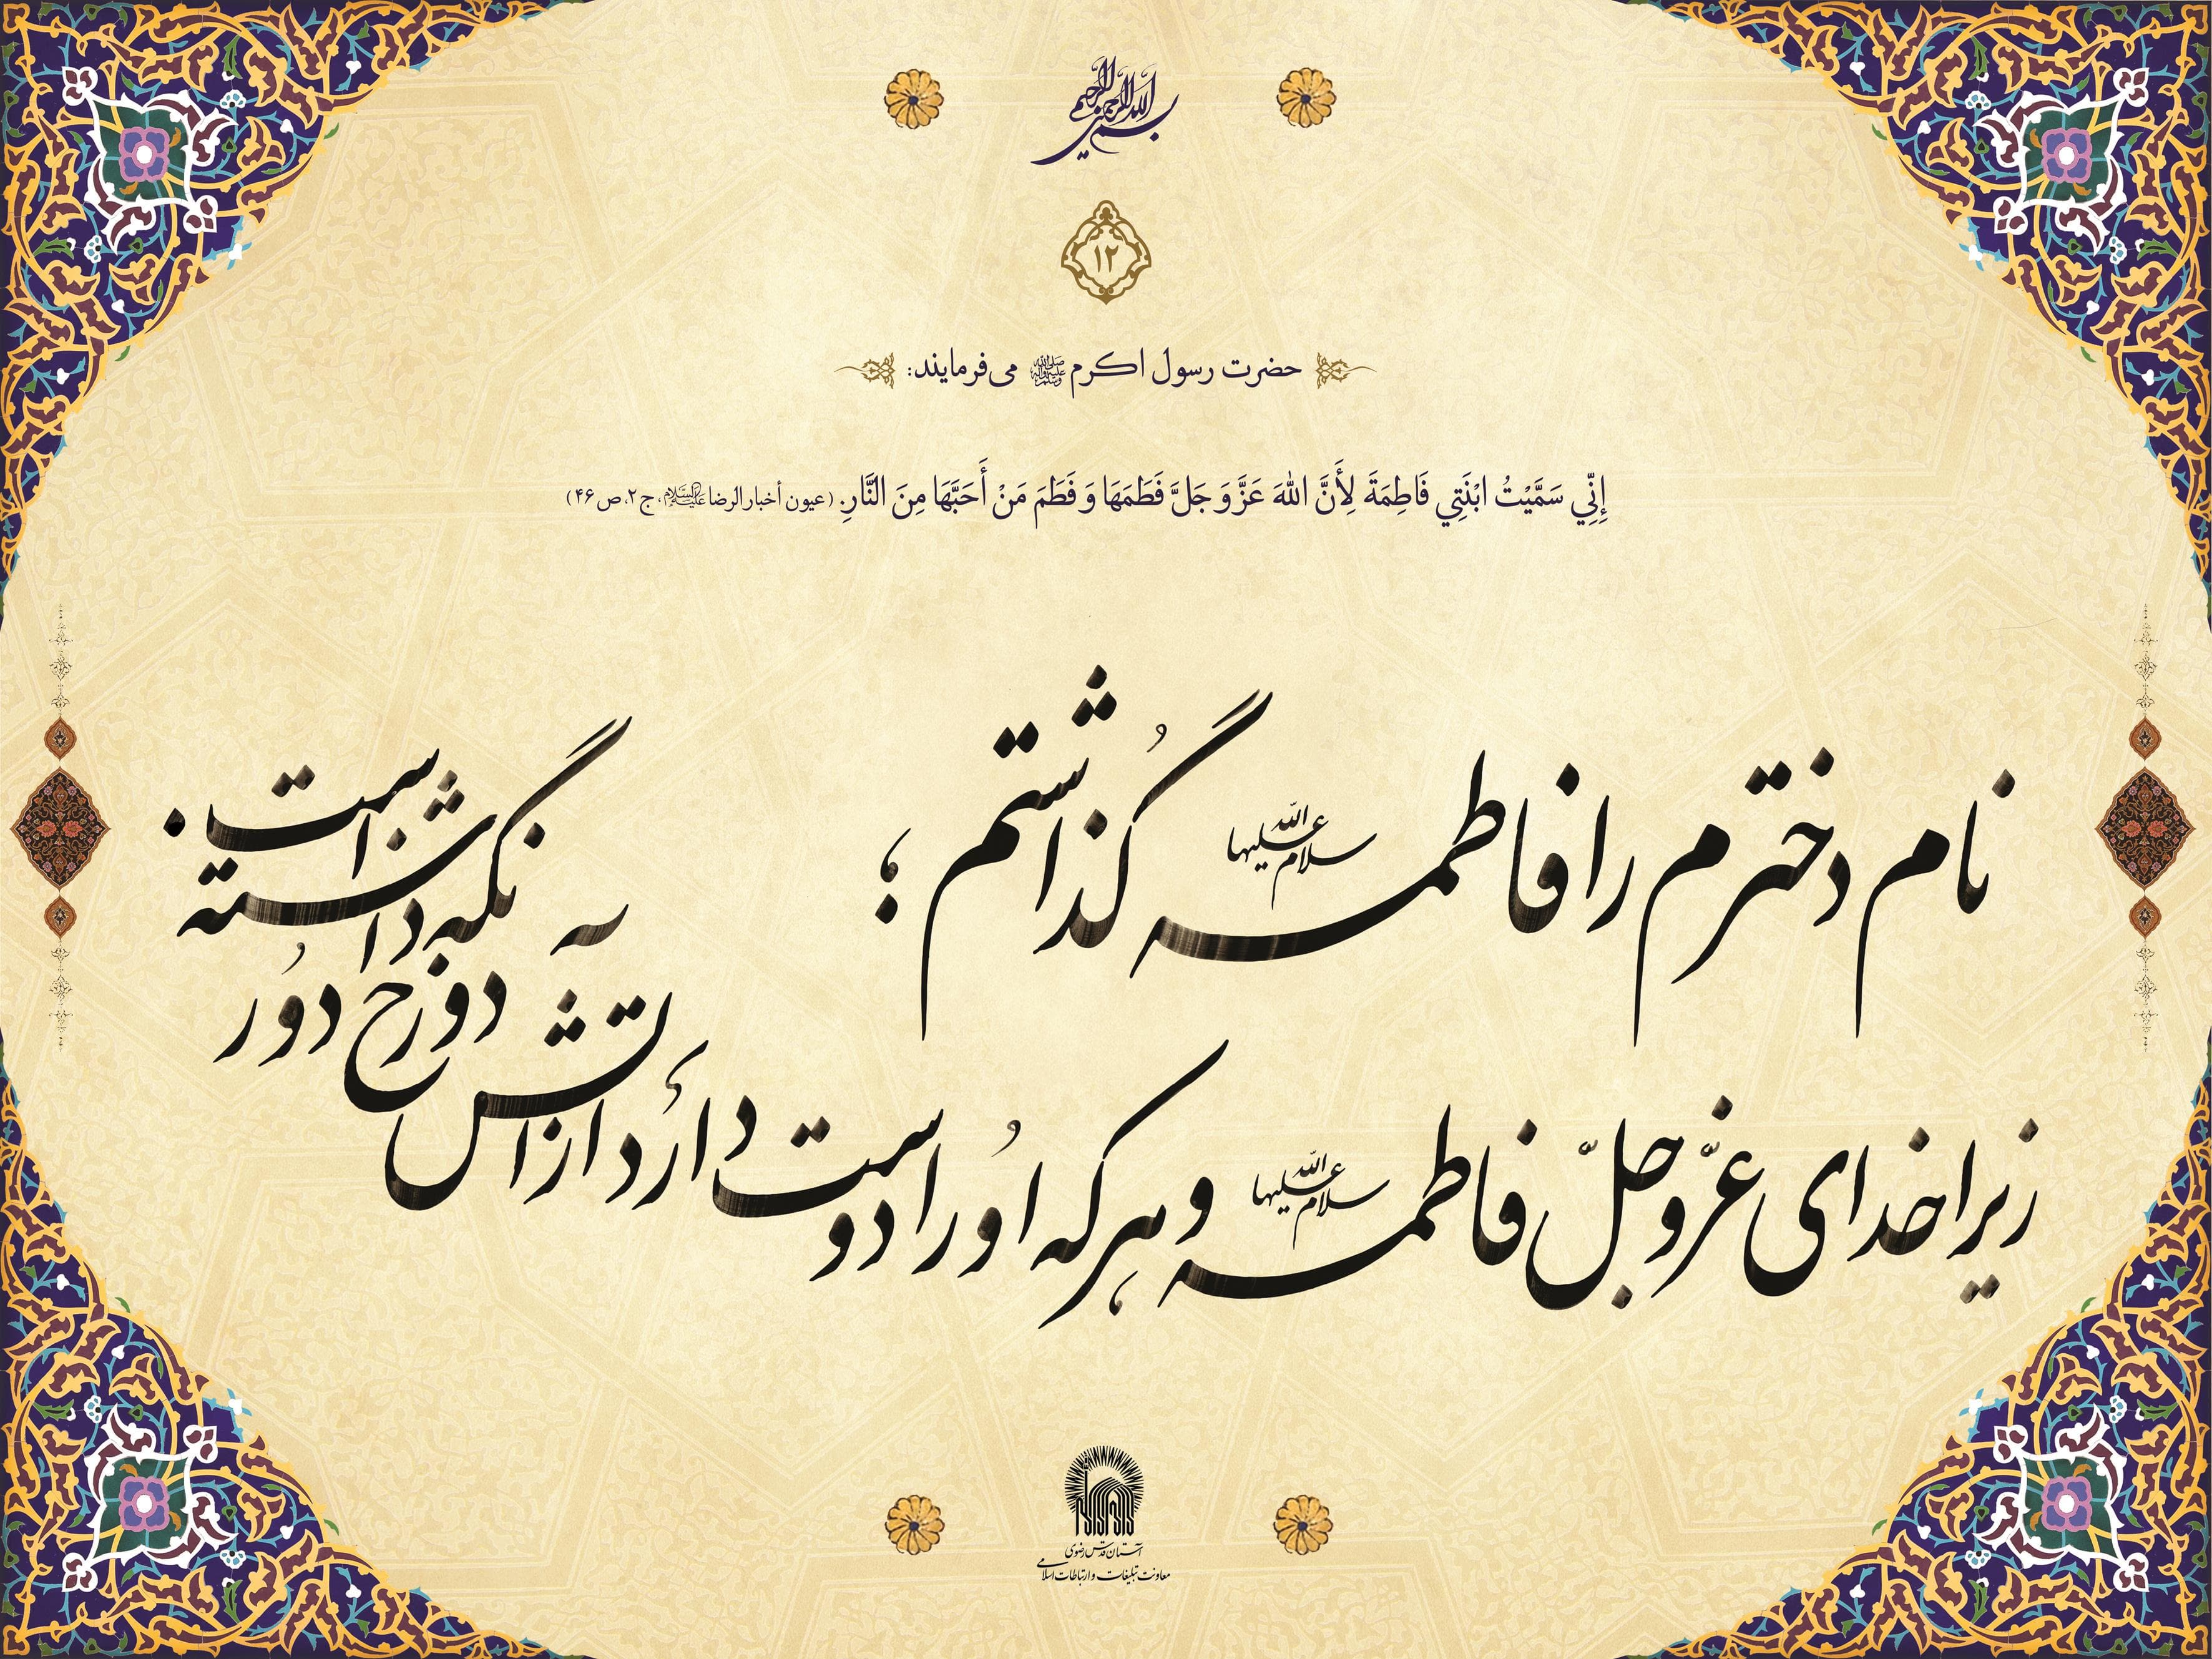 بسم الله الرحمن الرحیم
۱۲
حضرت رسول اکرم صلی الله علیه وآله وسلم می‌فرمایند:
إِنِّي سَمَّيْتُ ابْنَتِي فَاطِمَةَ لِأَنَّ اللهَ عَزَّ وَ جَلَّ فَطَمَهَا وَ فَطَمَ مَنْ أَحَبَّهَا مِنَ النَّارِ. (عیون أخبار الرضا علیه السلام، ج ۲، ص ۴۶)
نام دخترم را فاطمه سلام الله علیها گُذاشتم ؛
زیرا خدای عزّوجلّ فاطمه سلام الله علیها و هرکه اُو را دوست دارَد از آتش دوزخ دُور نگه داشته است.
آستان قدس رضوی
معاونت تبلیغات و ارتباطات اسلامی